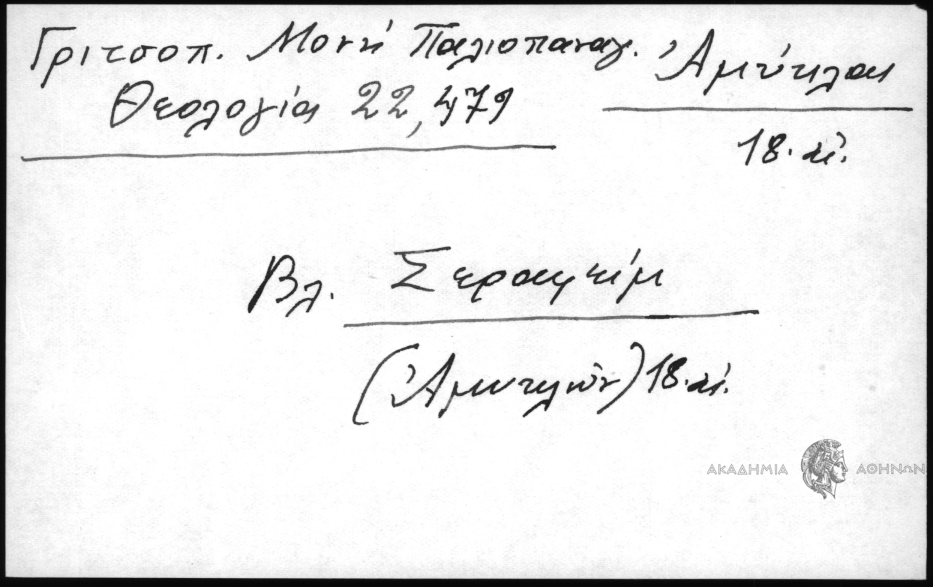 Γριτσοπ. Μονή Παλιοπαναγ.
Θεολογία 22, 479
Ἀμύκλαι
18. αἰ.
Βλ. Σεραφείμ
(Ἀμυκλῶν) 18. αἰ.
ΑΚΑΔΗΜΙΑ ΑΘΗΝΩΝ